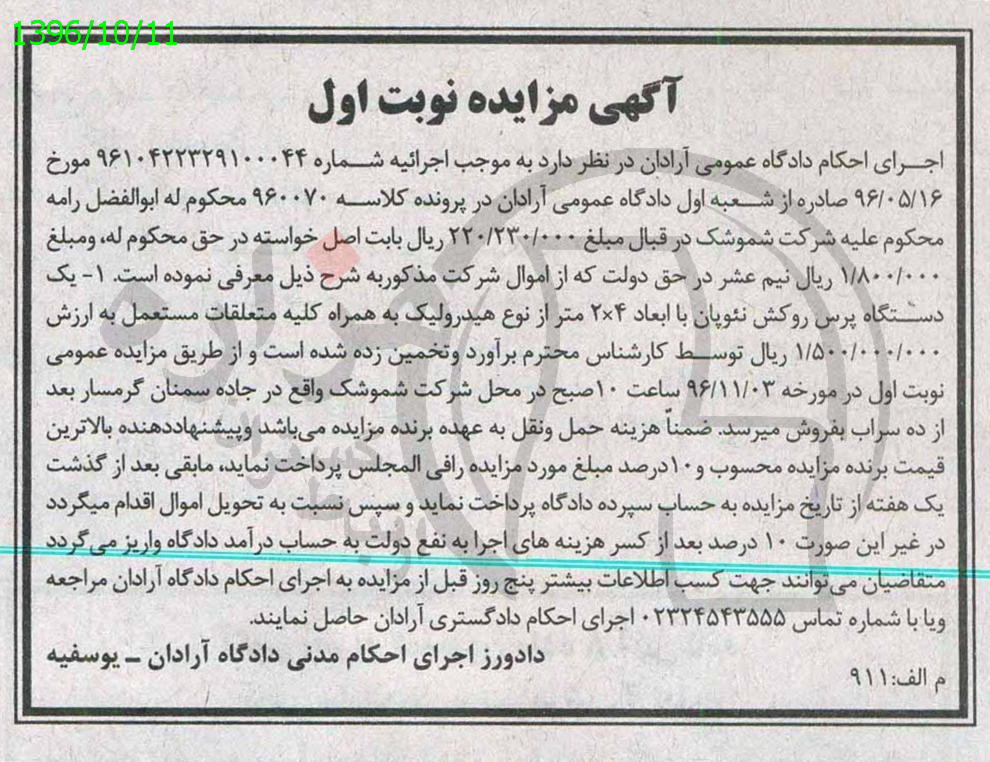 1396/10/11
آگهی مزایده نوبت اول
اجــرای احکام دادگاه عمومی آرادان در نظر دارد به موجب اجرائیه شــماره ۹۶۱۰۴۲۲۳۲۹۱۰۰۰۴۴ مورخ
۹۶/۰۵/۱۶ صادره از شــعبه اول دادگاه عمومی آرادان در پرونده کلاســه ۹۶۰۰۷۰ محکوم له ابوالفضل رامه
محکوم علیه شرکت شموشک در قبال مبلغ ۲۲۰/۲۳۰/۰۰۰ ریال بابت اصل خواسته در حق محکوم له، ومبلغ
۱/۸۰۰/۰۰۰ ریال نیم عشر در حق دولت که از اموال شرکت مذکوربه شرح ذیل معرفی نموده است. ۱- یک
دســتگاه پرس روکش نئوپان با ابعاد ۴×۲ متر از نوع هیدرولیک به همراه کلیه متعلقات مستعمل به ارزش
۱/۵۰۰/۰۰۰/۰۰۰ ریال توســط کارشناس محترم برآورد وتخمین زده شده است و از طریق مزایده عمومی
نوبت اول در مورخه ۹۶/۱۱/۰۳ ساعت ۱۰صبح در محل شرکت شموشک واقع در جاده سمنان گرمسار بعد
از ده سراب بفروش میرسد. ضمناً هزینه حمل ونقل به عهده برنده مزایده می‌باشد وپیشنهاددهنده بالاترین
قیمت برنده مزایده محسوب و۱۰درصد مبلغ مورد مزایده رافی المجلس پرداخت نماید، مابقی بعد از گذشت
یک هفته از تاریخ مزایده به حساب سپرده دادگاه پرداخت نماید و سپس نسبت به تحویل اموال اقدام میگردد
در غیر این صورت ۱۰ درصد بعد از کسر هزینه های اجرا به نفع دولت به حساب درآمد دادگاه واریز می‌گردد
متقاضیان می‌توانند جهت کسب اطلاعات بیشتر پنج روز قبل از مزایده به اجرای احکام دادگاه آرادان مراجعه
ویا با شماره تماس ۰۲۳۲۴۵۴۳۵۵۵ اجرای احکام دادگستری آرادان حاصل نمایند.
دادورز اجرای احکام مدنی دادگاه آرادان ــ یوسفیه
م الف:۹۱۱